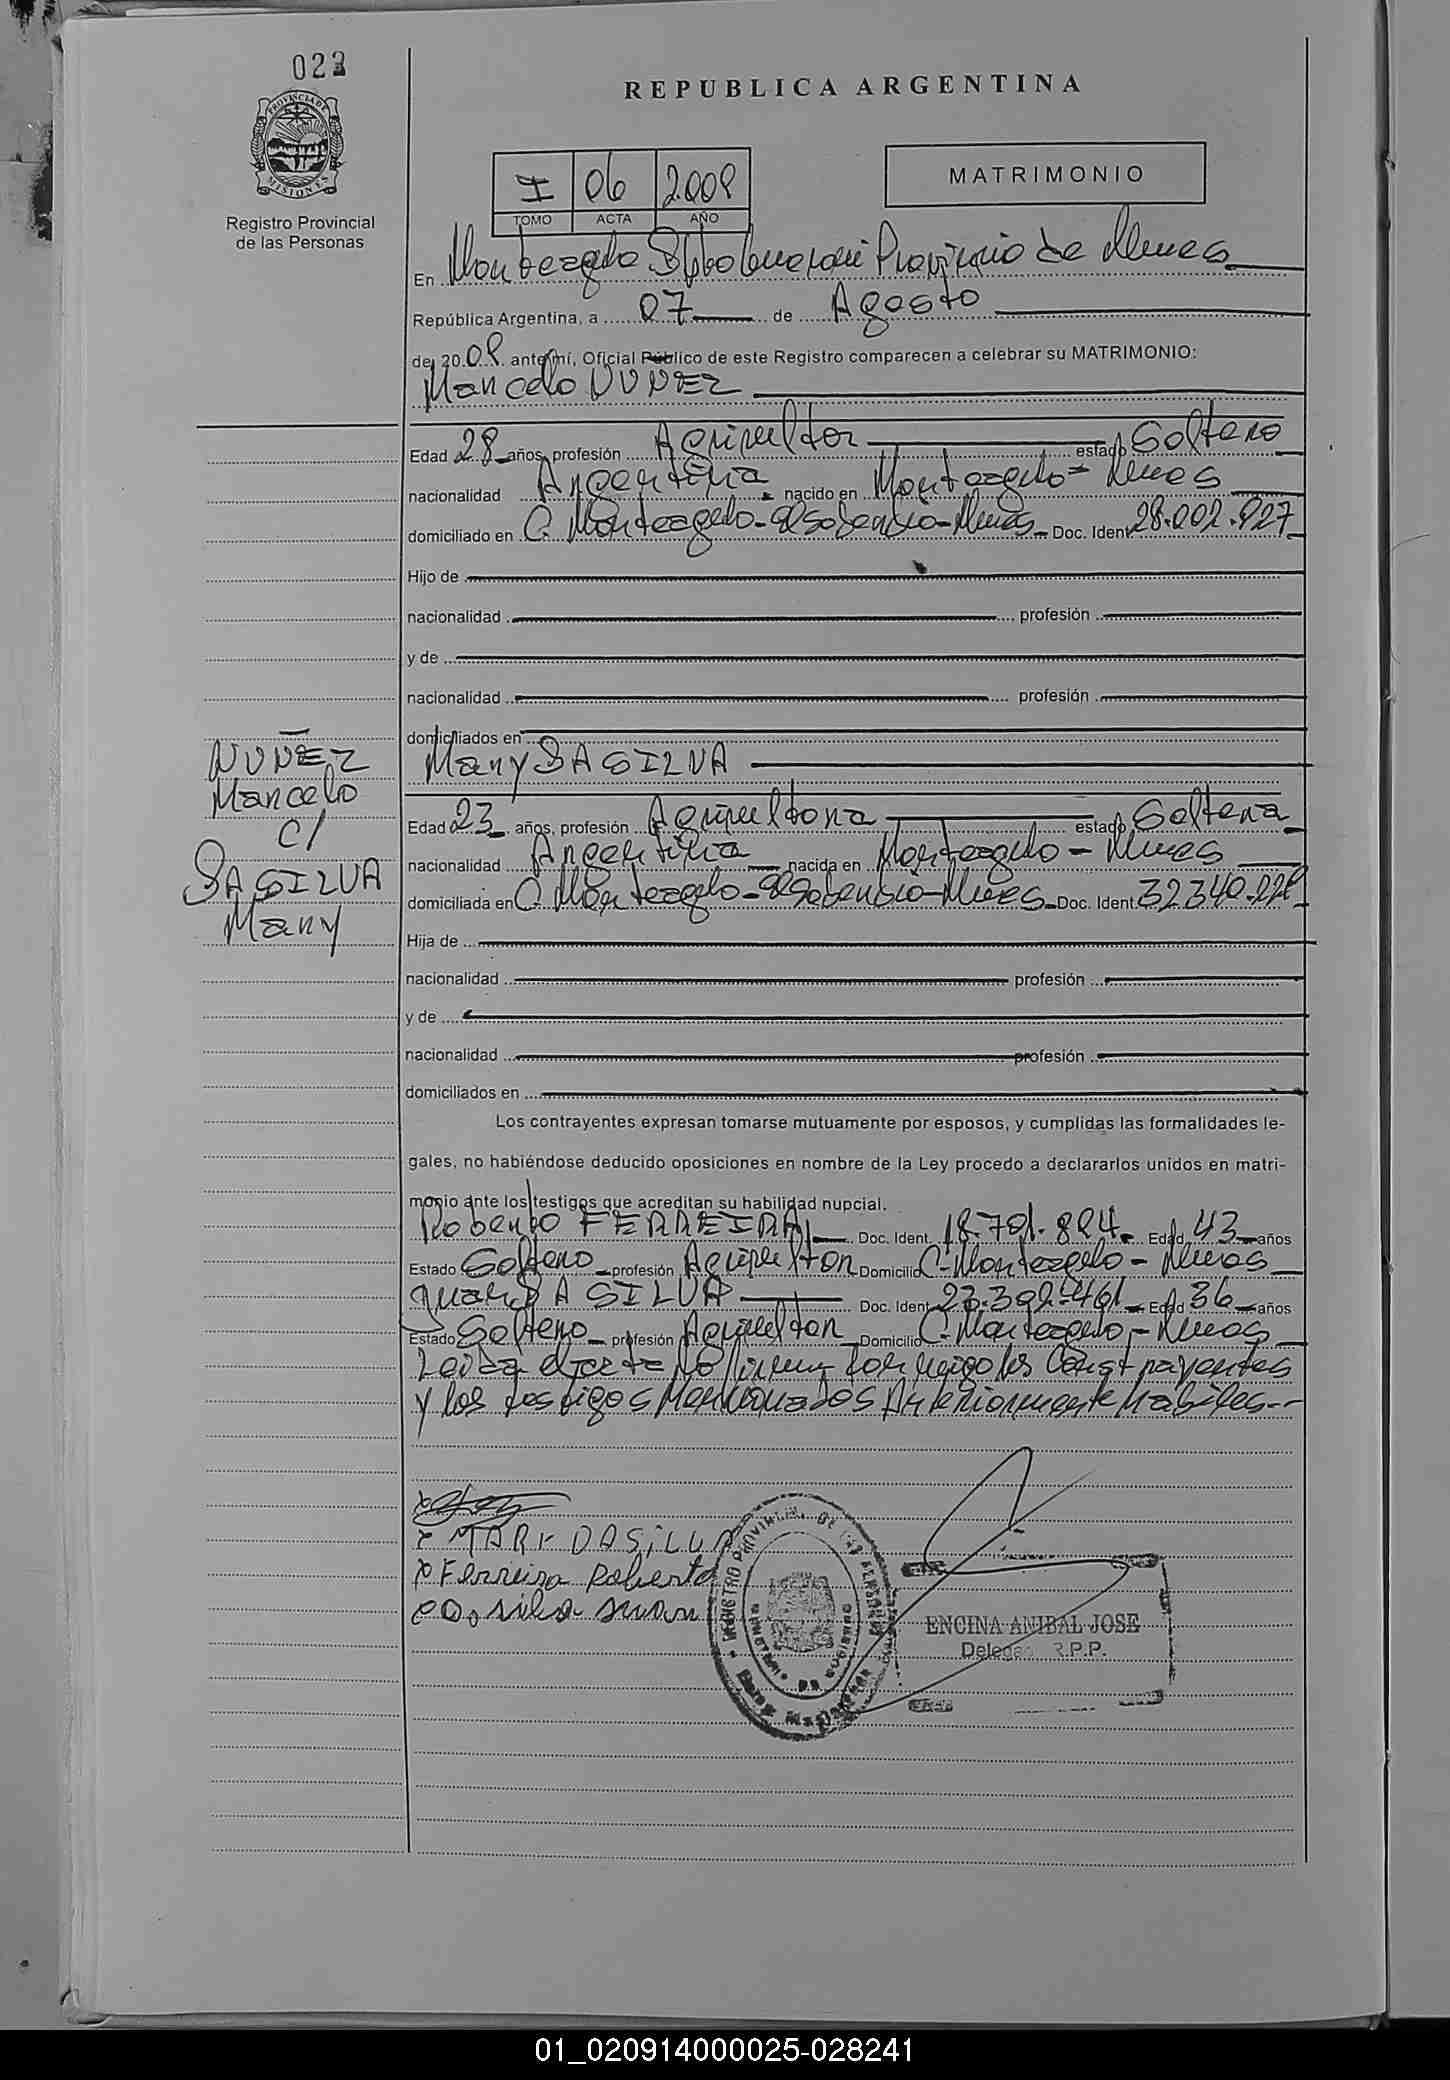 023
REPUBLICA ARGENTINA
PROVINCIA DE
MISIONES
Registro Provincial
de las Personas
I 06 2.008
TOMO ACTA AÑO
MATRIMONIO
En Monteagudo Dpto Guarani Provincia de Mnes
República Argentina, a 07 de Agosto
de 20 08 ante mí, Oficial Público de este Registro comparecen a celebrar su MATRIMONIO:
Marcelo NUÑEZ
Edad 28 años, profesión Agricultor estado Soltero
nacionalidad Argentina nacido en Monteagudo - Mnes
domiciliado en C. Monteagudo - El Soberbio - Mnes Doc. Ident 28.002.927
Hijo de
nacionalidad profesión
y de
nacionalidad profesión
domiciliados en
NUÑEZ
Marcelo
C/
DA SILVA
Mary
Mary DA SILVA
Edad 23 años, profesión Agricultora estado Soltera
nacionalidad Argentina nacida en Monteagudo - Mnes
domiciliada en C. Monteagudo - El Soberbio - Mnes Doc. Ident. 32340.228
Hija de
nacionalidad profesión
y de
nacionalidad profesión
domiciliados en
Los contrayentes expresan tomarse mutuamente por esposos, y cumplidas las formalidades le-
gales, no habiéndose deducido oposiciones en nombre de la Ley procedo a declararlos unidos en matri-
monio ante los testigos que acreditan su habilidad nupcial.
Roberto FERREIRA Doc. Ident. 18.701.824 Edad 43 años
Estado Soltero profesión Agricultor Domicilio C. Monteagudo - Mnes
Juan DA SILVA Doc. Ident 23.302.461 Edad 36 años
Estado Soltero profesión Agricultor Domicilio C. Monteagudo - Mnes
Leida el acta lo firman conmigo los Contrayentes
y los testigos Mencionados Anteriormente habiles--
x MARY DASiLUA
x Ferreira Roberto
Da silva Juan
REGISTRO PROVINCIAL DE LAS PERSONAS
ENCINA ANIBAL JOSE
Delegado R.P.P.
01_020914000025-028241